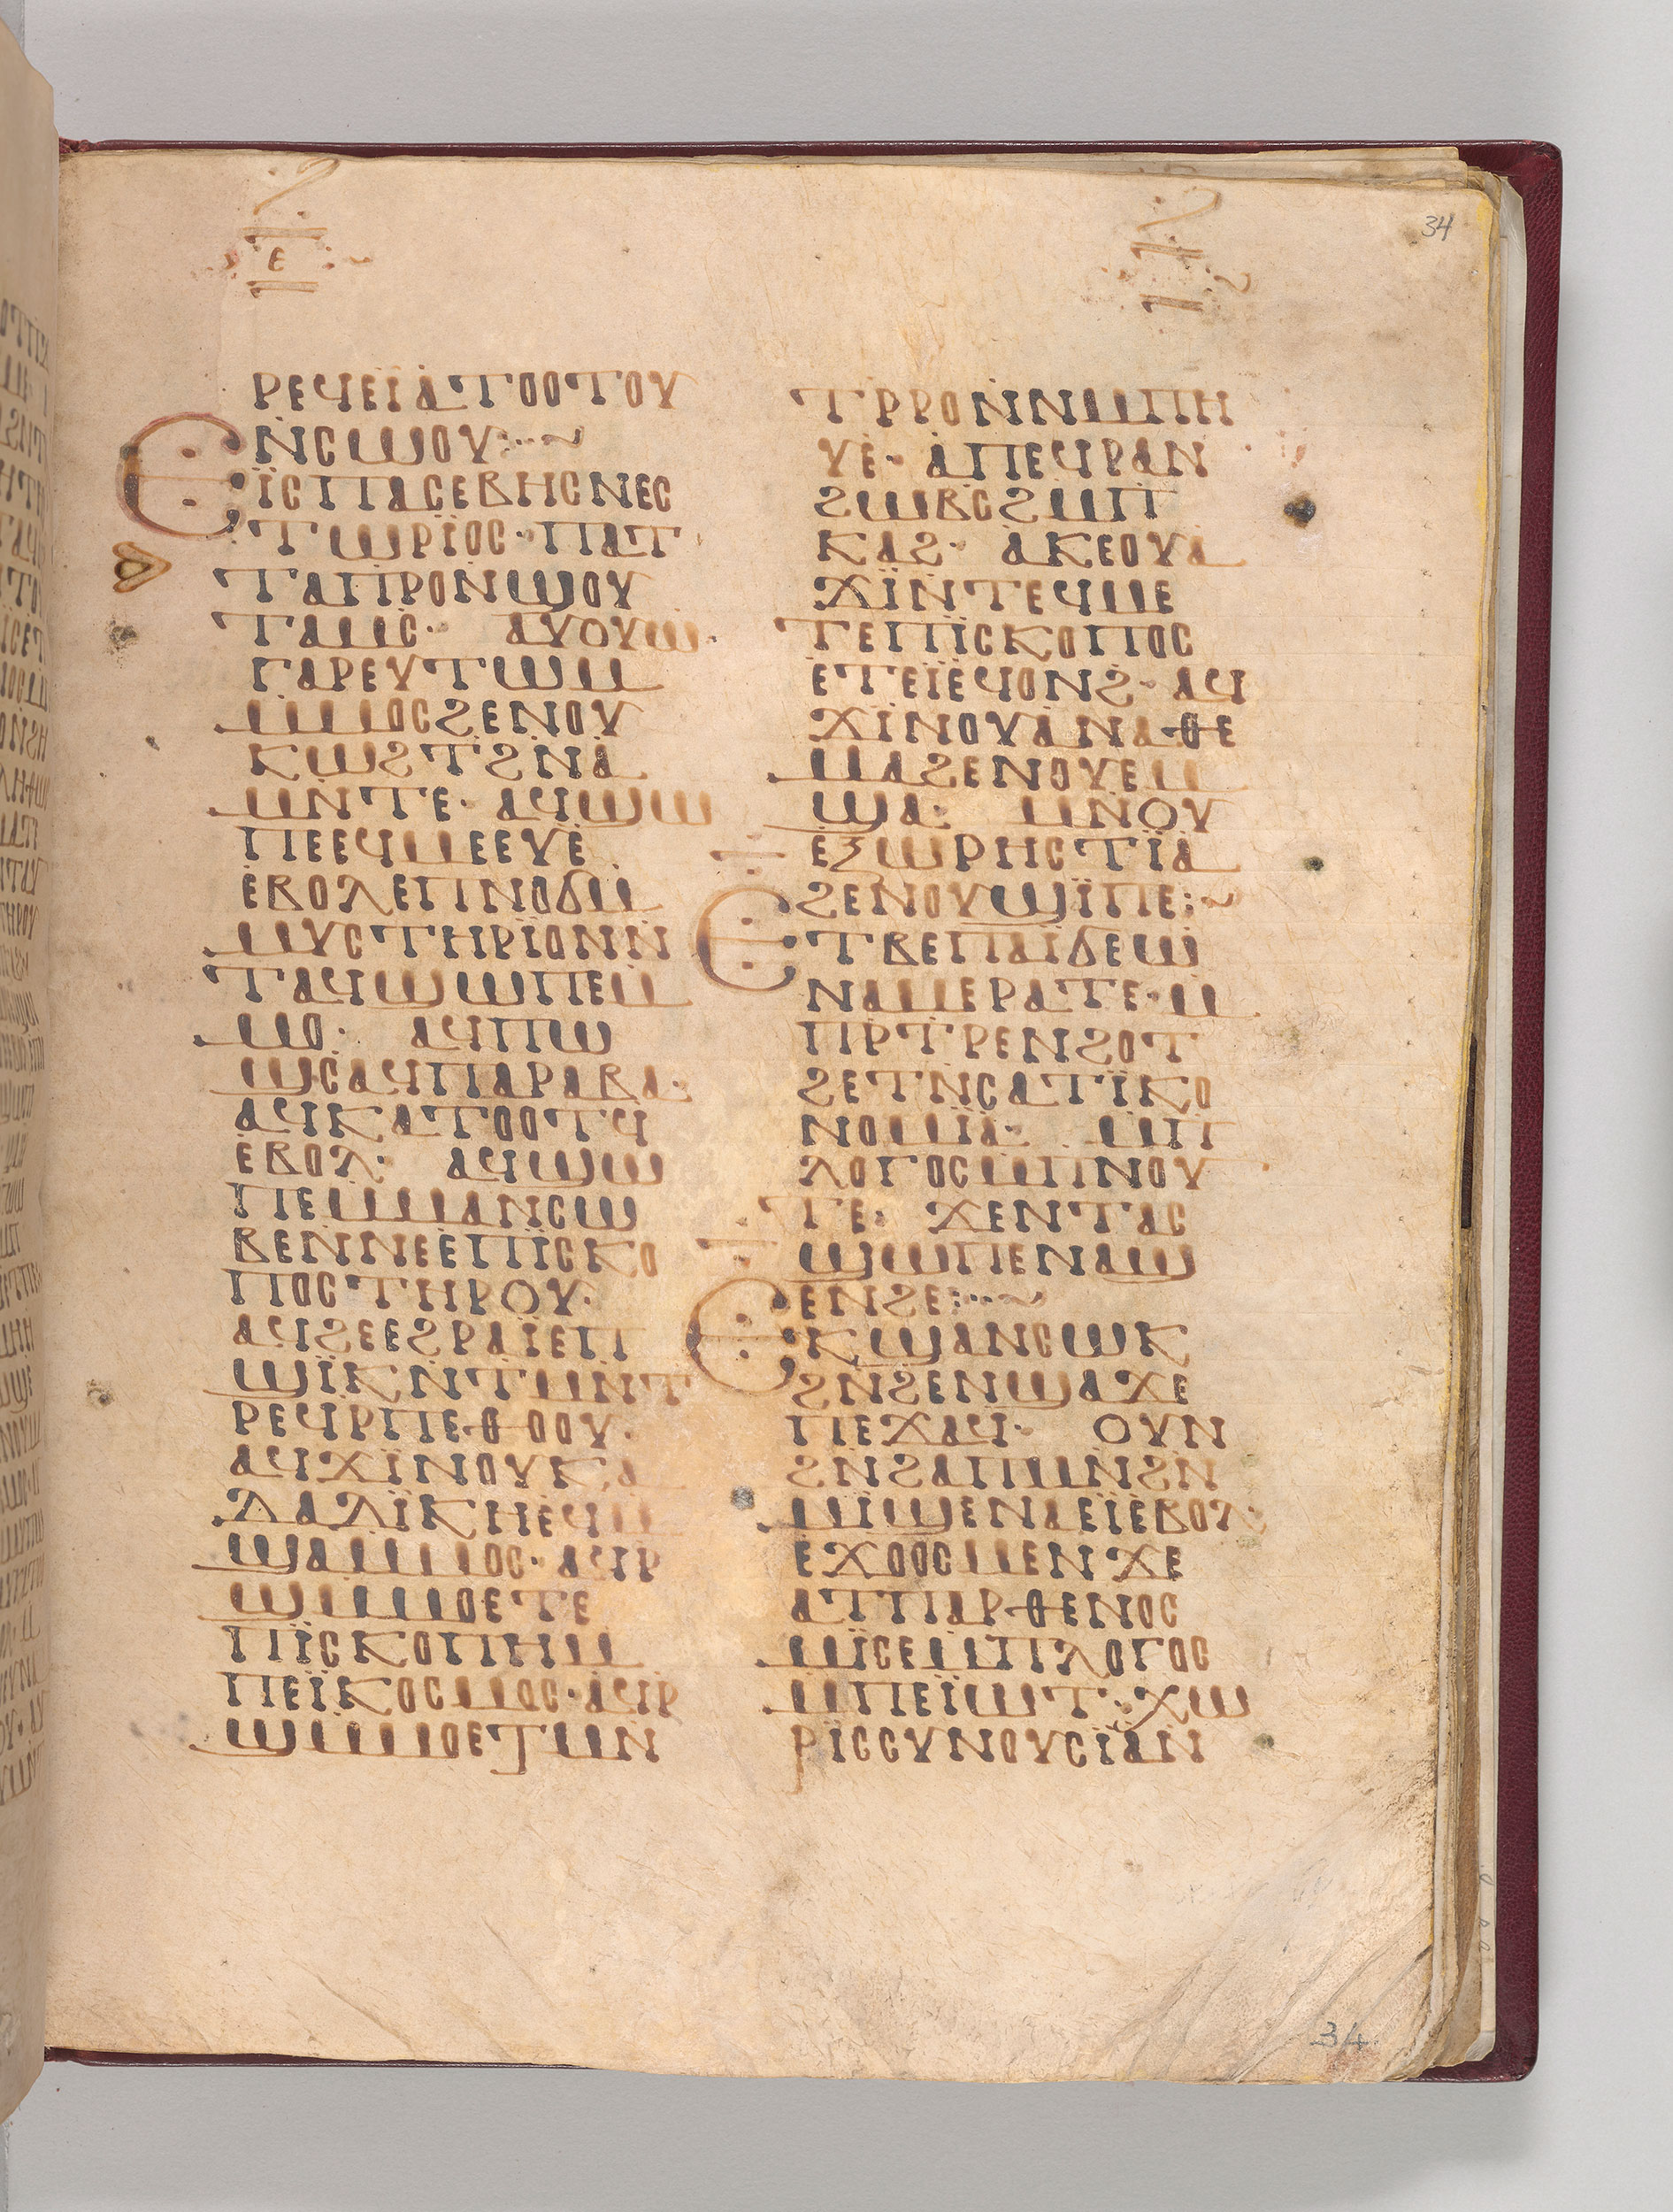 34
ⲉ
ⲣⲉϥⲉⲓ̈ⲁⲧⲟⲟⲧⲟⲩ
ⲛ̇ⲥⲱⲟⲩ:··~
ⲉⲓ̈ⲥⲡⲁⲥⲉⲃⲏⲥⲛⲉⲥ
ⲧⲱⲣⲓ̈ⲟⲥ· ⲡⲁⲧ
ⲧⲁⲡⲣⲟⲛ̇ϣⲟⲩ
ⲧⲁⲙⲥ̇· ⲁⲩⲟⲩⲱ
ⲅⲁⲣⲉⲩⲧⲱⲙ
ⲙ̇ⲙⲟⲥϩⲉⲛⲟⲩ
ⲕⲱϩⲧϩ̇ⲛⲁ̇
ⲙⲛ̇ⲧⲉ· ⲁϥϣⲱ
ⲡⲉⲉϥⲙⲉⲉⲩⲉ̇
ⲉ̇ⲃⲟⲗⲉⲡⲛⲟϭⲙ̇
ⲙⲩⲥⲧⲏⲣⲓ̈ⲟⲛⲛ̇
ⲧⲁϥϣⲱⲡⲉⲙ̇
ⲙⲟ· ⲁϥⲡⲱ
ϣⲥⲁϥⲡⲁⲣⲁⲃⲁ·
ⲁϥⲕⲁⲧⲟⲟⲧϥ
ⲉ̇ⲃⲟⲗ· ⲁϥϣⲱ
ⲡⲉⲙ̇ⲙⲁⲛⲥⲱ
ⲃⲉⲛ̇ⲛⲉⲉⲡⲓ̈ⲥⲕⲟ
ⲡⲟⲥⲧⲏⲣⲟⲩ·
ⲁϥϩⲉⲉϩⲣⲁⲓ̈ⲉⲡ
ϣⲓ̈ⲕⲛ̇ⲧⲙⲛ̇ⲧ
ⲣⲉϥⲣ̇ⲡⲉⲑⲟⲟⲩ·
ⲁϥϫⲓ̈ⲛⲟⲩⲕⲁ
ⲗⲁⲗⲓ̈ⲕⲏⲉ̇ϥⲙ̇
ϣⲁⲙ̇ⲙⲟⲥ· ⲁϥⲣ̇
ϣⲙ̇ⲙⲟⲉⲧⲉ
ⲡⲓ̈ⲥⲕⲟⲡⲏⲙ̇
ⲡⲉⲓ̈ⲕⲟⲥⲙⲟⲥ· ⲁϥⲣ̇
ϣⲙ̇ⲙⲟⲉⲧⲙⲛ̇
ⲧⲣ̇ⲣⲟⲛ̇ⲙ̇ⲡⲏ
ⲩⲉ̇· ⲁ̇ⲡⲉϥⲣⲁⲛ
ϩⲱⲃⲥϩⲙ̇ⲡ
ⲕⲁϩ· ⲁ̇ⲕⲉⲟⲩⲁ̇
ϫⲓ̈ⲛ̇ⲧⲉϥⲙⲉ
ⲧⲉⲡⲓ̈ⲥⲕⲟⲡⲟⲥ
ⲉ̇ⲧⲉⲓ̈ⲉ̇ϥⲟⲛϩ̇· ⲁϥ
ϫⲓ̈ⲛⲟⲩⲁⲛⲁⲑⲉ
ⲙⲁϩⲉⲛⲟⲩⲉⲙ
ϣⲁ· ⲙⲛ̇ⲟⲩ
ⲉⲝⲱⲣⲏⲥⲧⲓ̈ⲁ̇
ϩⲉⲛⲟⲩϣⲓ̈ⲡⲉ:~
ⲉⲧⲃⲉⲡⲁⲓ̈ϭⲉⲱ̇
ⲛⲁⲙⲉⲣⲁⲧⲉ· ⲙ̇
ⲡⲣ̇ⲧⲣⲉⲛϩⲟⲧ
ϩⲉⲧⲛ̇ⲥⲁⲧⲓ̈ⲕⲟ
ⲛⲟⲙⲓ̈ⲁ̇· ⲙ̇ⲡ
ⲗⲟⲅⲟⲥⲙ̇ⲡⲛⲟⲩ
ⲧⲉ· ϫⲉⲛⲧⲁⲥ
ϣⲱⲡⲉⲛⲁϣ
ⲉⲛϩⲉ:··~
ⲉⲕϣⲁⲛⲥⲱⲕ
ϩⲛ̇ϩⲉⲛϣⲁϫⲉ
ⲡⲉϫⲁϥ· ⲟⲩⲛ
ϩⲛ̇ϩⲁⲡⲙ̇ⲛ̇ϩⲛ
ⲙⲓ̈ϣⲉⲛⲁⲉⲓ̈ⲉ̇ⲃⲟⲗ
ⲉϫⲟⲟⲥⲙⲉⲛϫⲉ
ⲁⲧⲡⲁⲣⲑⲉⲛⲟⲥ
ⲙⲓ̈ⲥⲉⲙ̇ⲡⲗⲟⲅⲟⲥ
ⲙ̇ⲡⲉⲓ̈ⲱⲧ· ϫⲱ
ⲣⲓ̈ⲥⲥⲩⲛⲟⲩⲥⲓ̈ⲁⲛ
34